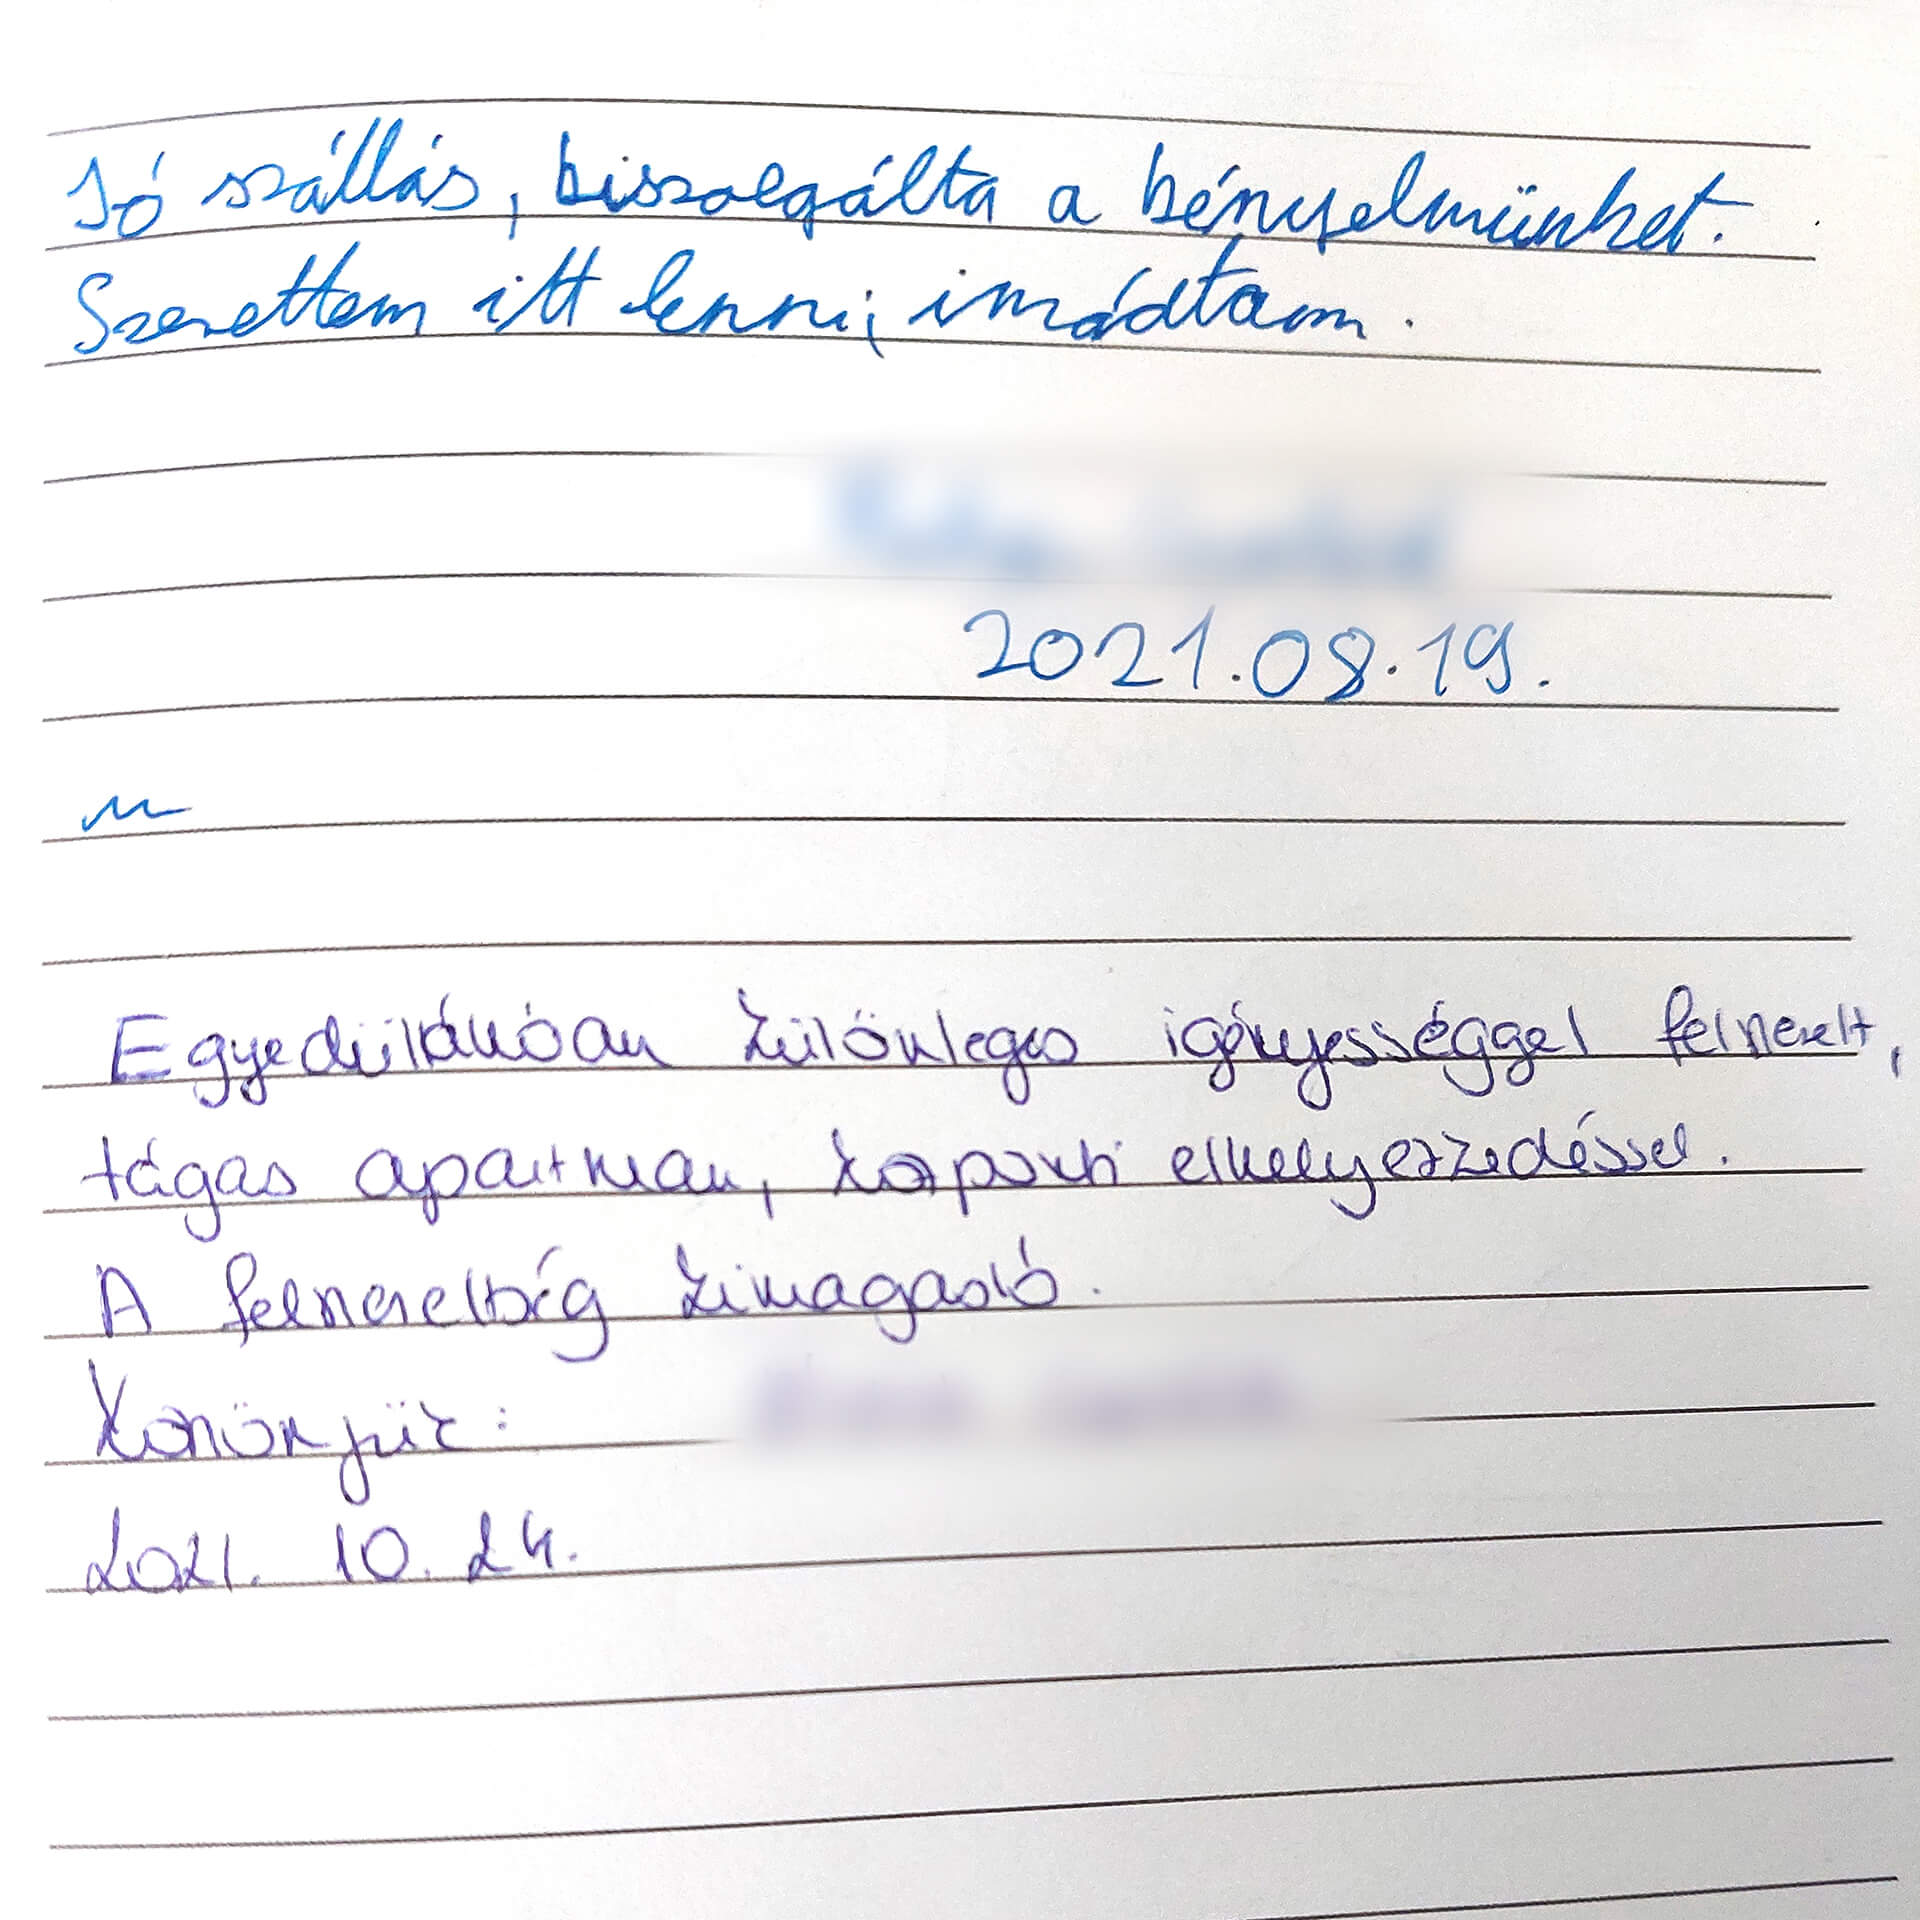 Jó szállás, kiszolgálta a kényelmünket.
Szerettem itt lenni, imádtam.
2021.08.19.
Egyedülállóan különleges igényességgel felszerelt,
tágas apartman, központi elhelyezkedéssel.
A felszereltség kimagasló.
Köszönjük:
2021. 10. 24.